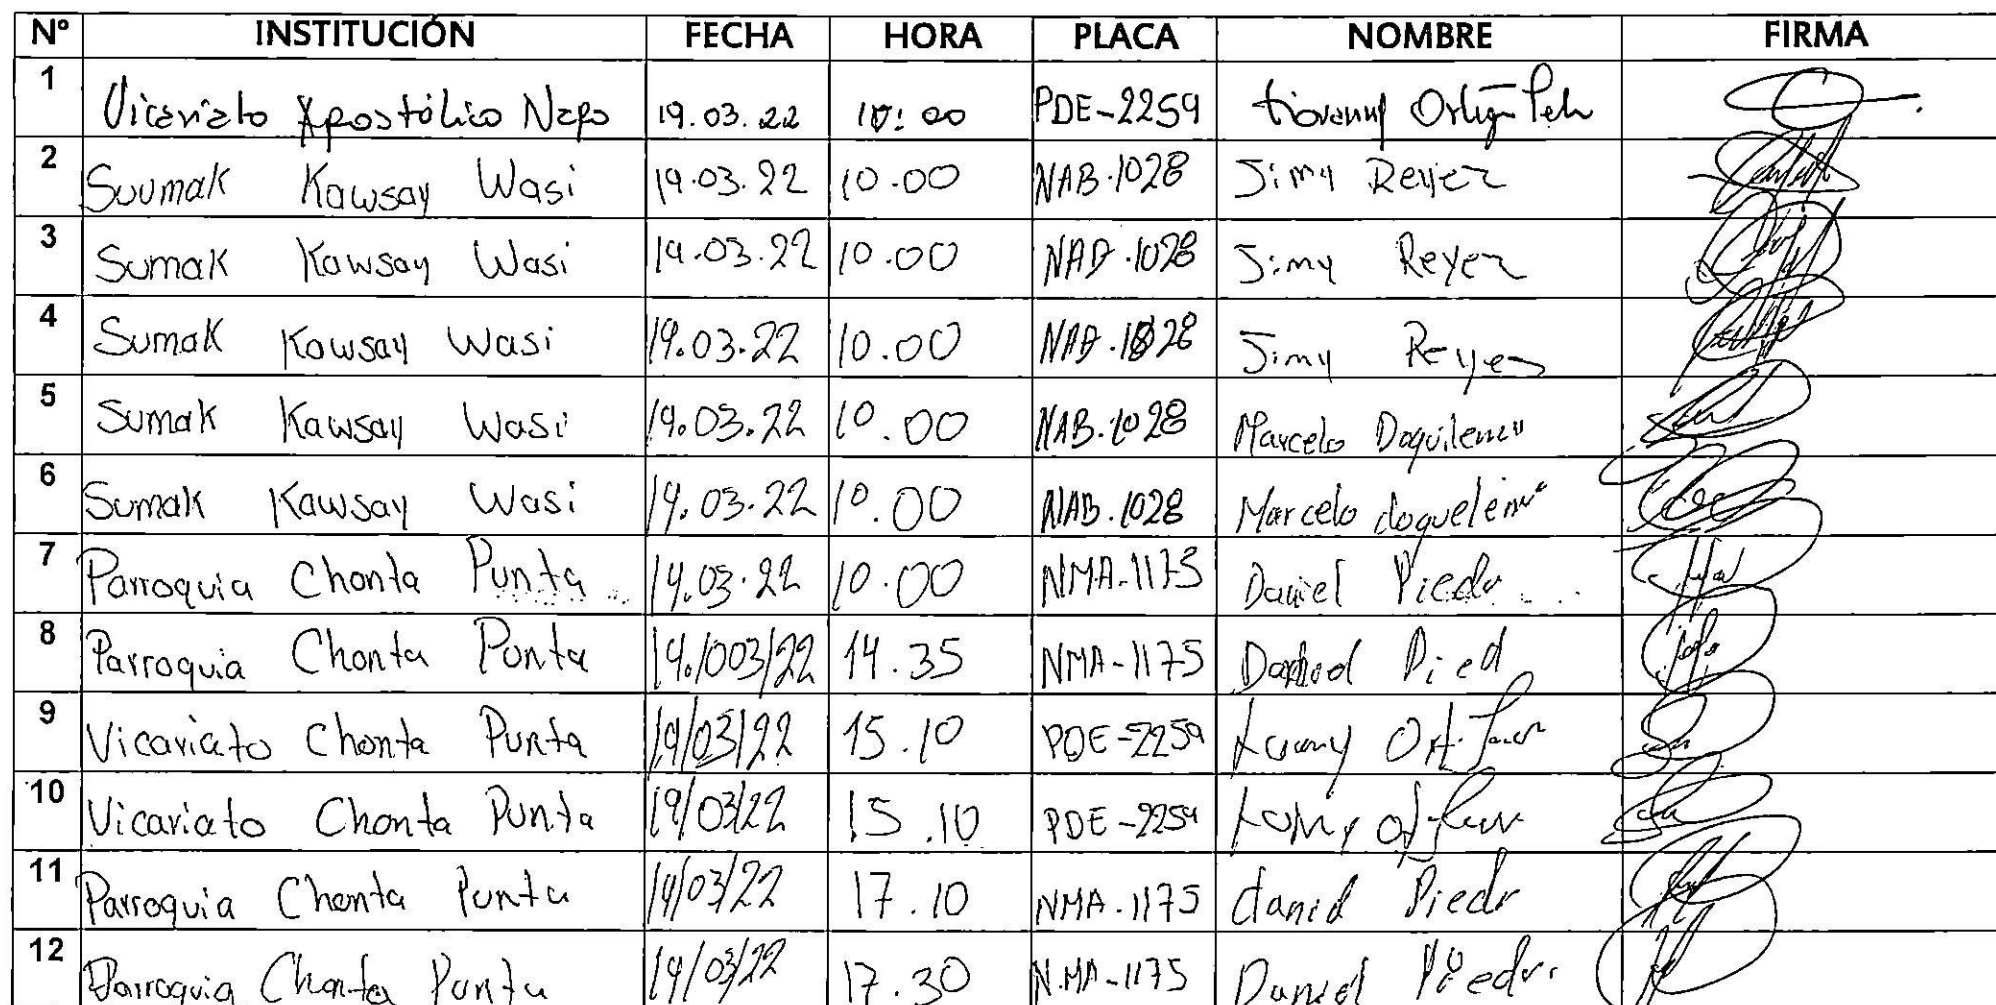 Nº INSTITUCIÓN FECHA HORA PLACA NOMBRE FIRMA
1 Vicariato Apostólico Napo 19.03.22 10:00 PDE-2259
2 Suumak Kawsay Wasi 19.03.22 10.00 NAB.1028 Jimy Reyez
3 Sumak Kawsay Wasi 19.03.22 10.00 NAB.1028 Jimy Reyez
4 Sumak Kawsay Wasi 19.03.22 10.00 NAB.1028 Jimy Reyes
5 Sumak Kawsay Wasi 19.03.22 10.00 NAB.1028 Marcelo
6 Sumak Kawsay Wasi 19.03.22 10.00 NAB.1028 Marcelo
7 Parroquia Chonta Punta 19.03.22 10.00 NMA-1175 Daniel Piedr
8 Parroquia Chonta Punta 19./003/22 14.35 NMA-1175 Pied
9 Vicariato Chonta Punta 19/03/22 15.10 PDE-2259
10 Vicariato Chonta Punta 19/03/22 15.10 PDE-2259
11 Parroquia Chonta Punta 19/03/22 17.10 NMA.1175 daniel Piedr
12 Parroquia Chonta Punta 19/03/22 17.30 N.MA-1175 Daniel